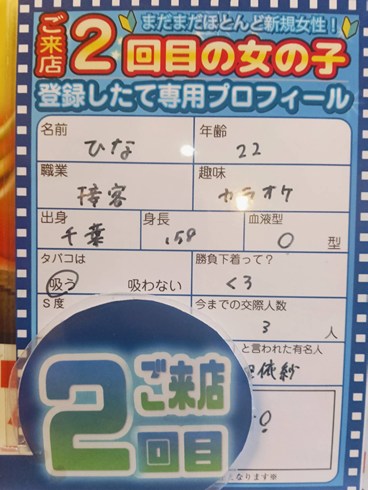 まだまだほとんど新規女性!
ご来店2回目の女の子
登録したて専用プロフィール
名前 ひな 年齢 22
職業 接客 趣味 カラオケ
出身 千葉 身長 158 血液型 O 型
タバコは 吸う 吸わない 勝負下着って? 黒
S度 今までの交際人数 3 人
と言われた有名人
依紗
ご来店
2回目
なります※